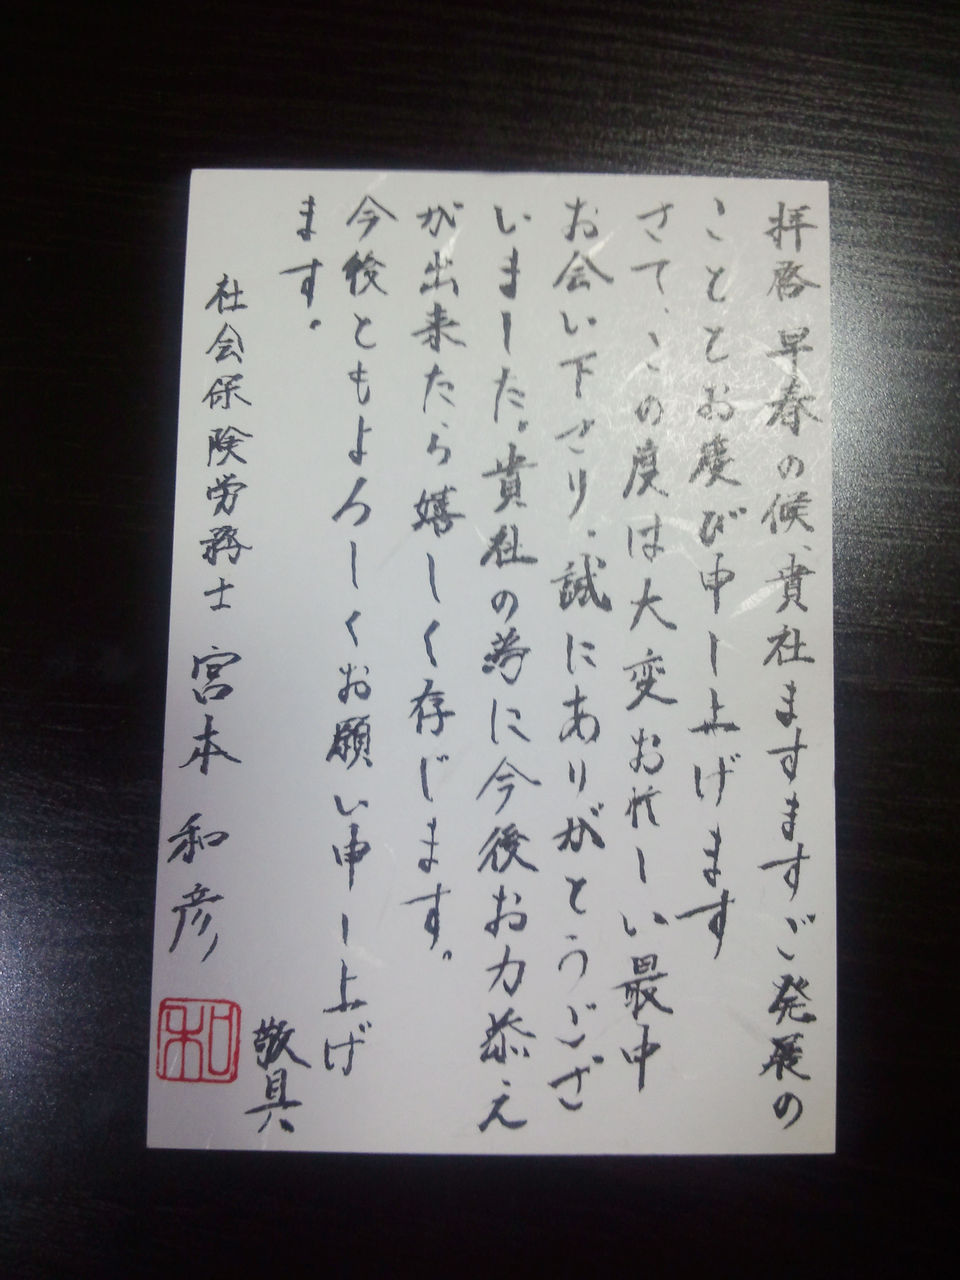 拝啓 早春の候、貴社ますますご発展の
こととお慶び申し上げます
さて、この度は大変お忙しい最中
お会い下さり、誠にありがとうござ
いました。貴社の為に今後お力添え
が出来たら嬉しく存じます。
今後ともよろしくお願い申し上げ
ます。
敬具
社会保険労務士 宮本 和彦
和